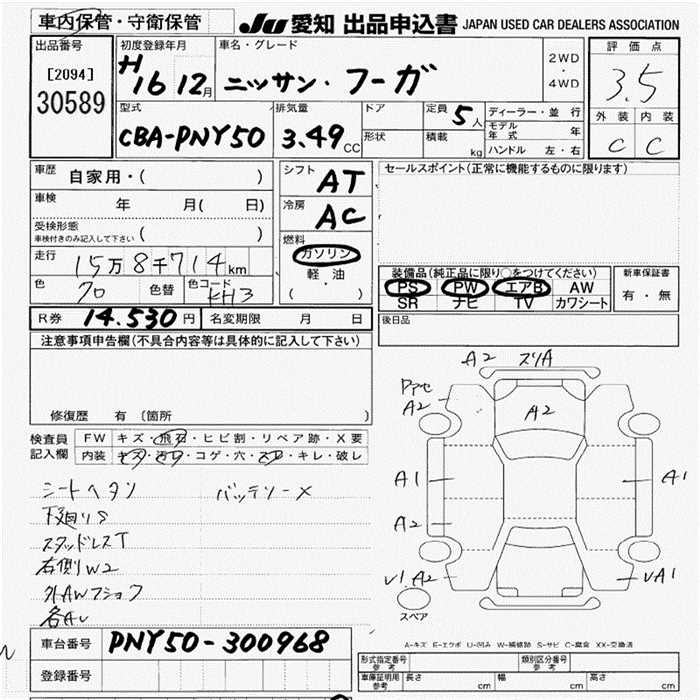 車内保管・守衛保管
JU 愛知 出品申込書 JAPAN USED CAR DEALERS ASSOCIATION
出品番号
[2094]
30589
初度登録年月
H16 12月
車名・グレード
ニッサン・フーガ
2WD
・
4WD
評価点
3.5
外装 内装
C C
型式
CBA-PNY50
排気量
3.49CC
ドア
形状
定員 5人
積載 kg
ディーラー・並行
モデル年式 年
ハンドル 左・右
車歴 自家用・( )
車検 年 月( 日)
受検形態
車検付きのみ記入して下さい ( )
走行 15万8千714km
色 クロ 色替 色コード KH3
シフト AT
冷房 AC
燃料
ガソリン
軽・油
( )
セールスポイント(正常に機能するものに限ります)
装備品(純正品に限り○をつけてください)
PS PW エアB AW
SR ナビ TV カワシート
新車保証書
有・無
R券 14.530円 名変期限 月 日
後日品
注意事項申告欄(不具合内容等は具体的に記入して下さい)
修復歴 有 〔箇所 〕
検査員記入欄
FW キズ・飛石・ヒビ割・リペア跡・X要
内装 キズ・汚レ・コゲ・穴・スレ・キレ・破レ
シートヘタリ バッテリーX
下廻りS
スタッドレスT
右側W2
外AWフショク
各AU
A2 スリA
A2
A2
A1
A2
A1
V1 A2
VA1
スペア
A-キズ E-エクボ U-凹み W-補修跡 S-サビ C-腐食 XX-交換済
車台番号 PNY50-300968
登録番号
形式指定番号 参考
類別区分番号 参考
車庫証明用 参考 長さ cm 幅 cm 高さ cm